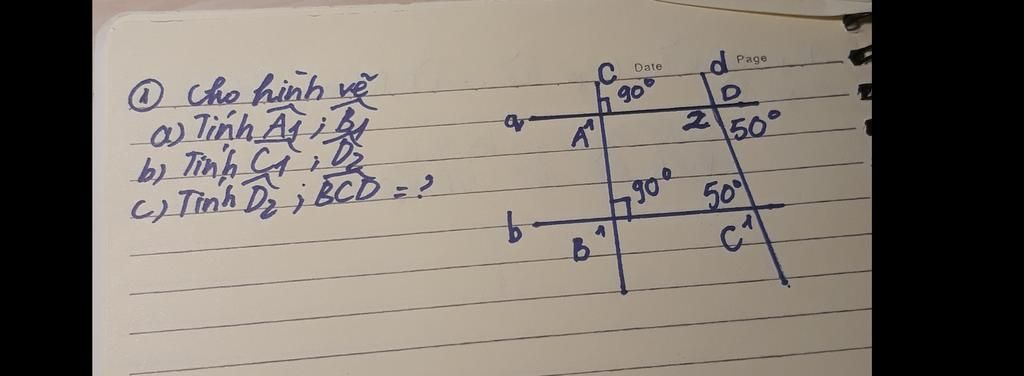 ① Cho hình vẽ
a) Tính A1 ; B1
b) Tính C1 ; D2
c) Tính D2 ; BCD = ?
c Date d Page
90° D
a
A 1 2 50°
90° 50°
b
B 1 C 1